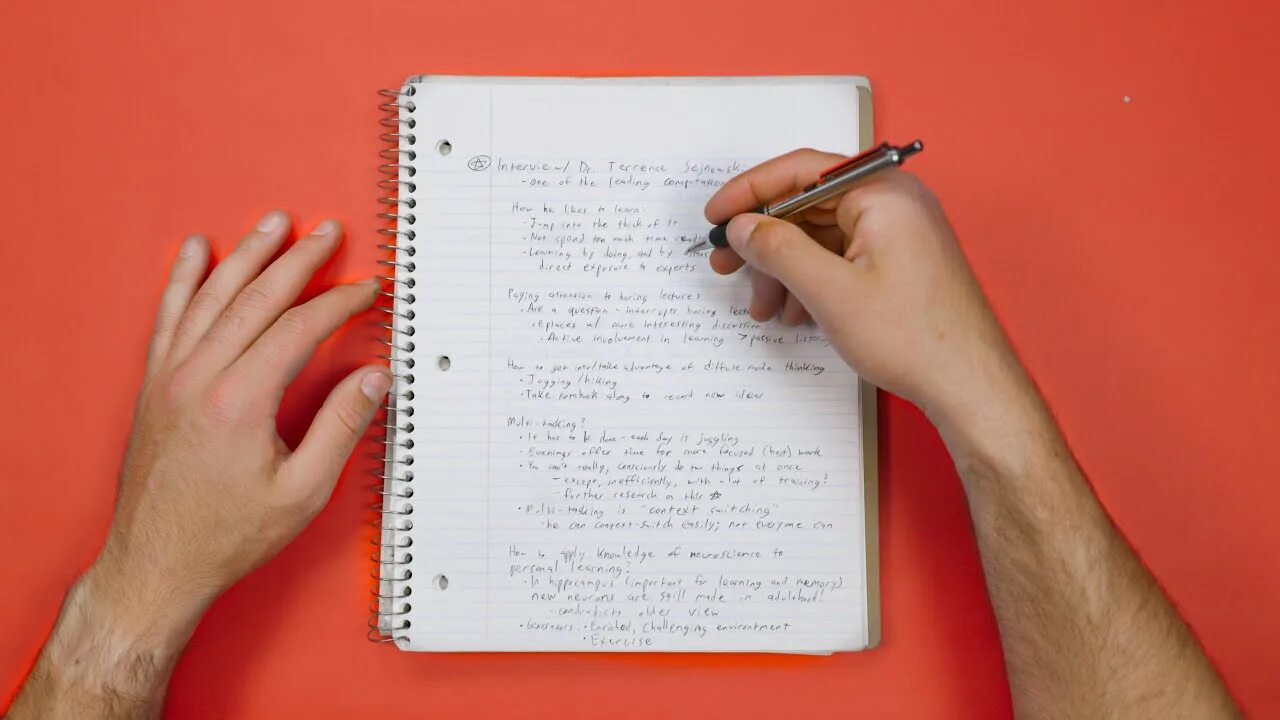 Interview w/ Dr. Terrence Sejnowski
- one of the leading computation
How he likes to learn:
- Jump into the thick of it
- Not spend too much time
- Learning by doing, and by
direct exposure to experts
Paying attention to boring lectures
- Ask a question - interrupts boring
replaces w/ more interesting discussion
• Active involvement in learning > passive listening
How to get into/take advantage of diffuse mode thinking
• Jogging/hiking
• Take notebook along to record new ideas
Multi-tasking?
• It has to be done - each day is juggling
• Evenings offer time for more focused (best) work
• You can't really, consciously do two things at once
- except, inefficiently, with a lot of training!
- further research on this ☆
• Multi-tasking is "context switching"
- he can context-switch easily; not everyone can
How to apply knowledge of neuroscience to
personal learning?
• In hippocampus (important for learning and memory)
new neurons are still made in adulthood!
- contradicts older view
• Enriched, challenging environment
• Exercise